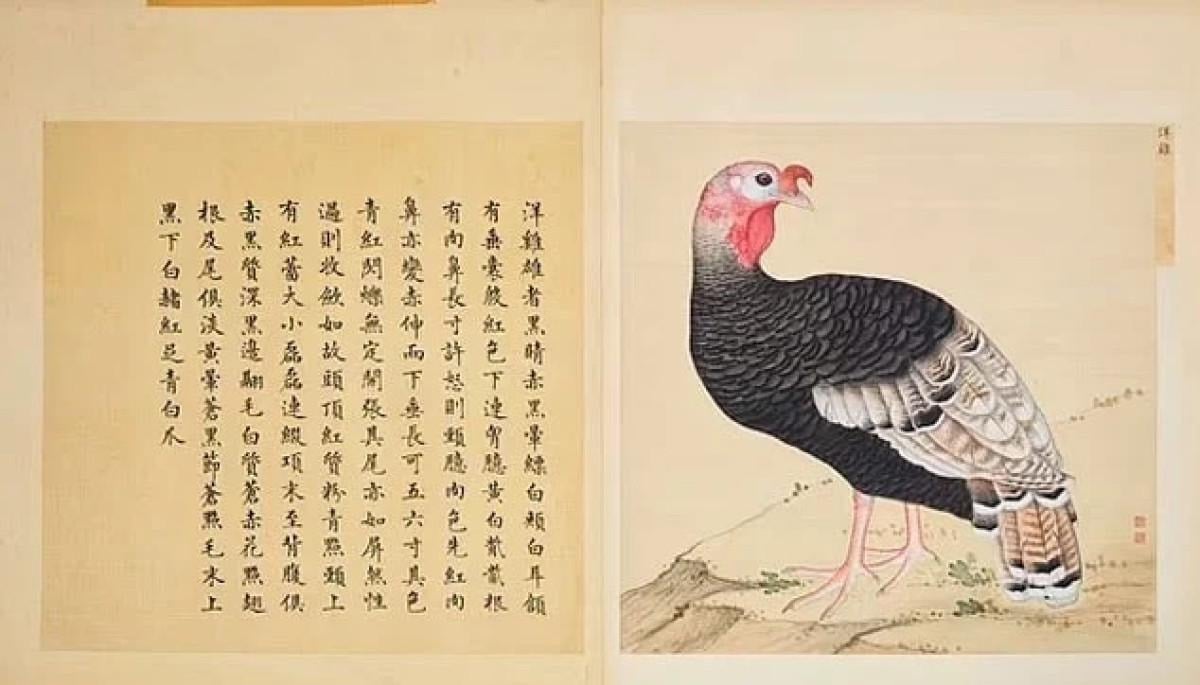 洋雞
洋雞雄者黑睛赤黑暈縹白頰白耳頷
有垂囊殷紅色下連胷臆黃白氄氄根
有肉鼻長寸許怒則頸臆肉色先紅肉
鼻亦變赤伸而下垂長可五六寸其色
青紅閃爍無定開張其尾亦如屏然性
過則收斂如故頭頂紅質粉青點頸上
有紅蕾大小磊磊連綴項末至背腹俱
赤黑質深黑邊翮毛白質蒼赤花點翅
根及尾俱淡黃暈蒼黑節蒼點毛末上
黑下白赭紅足青白爪